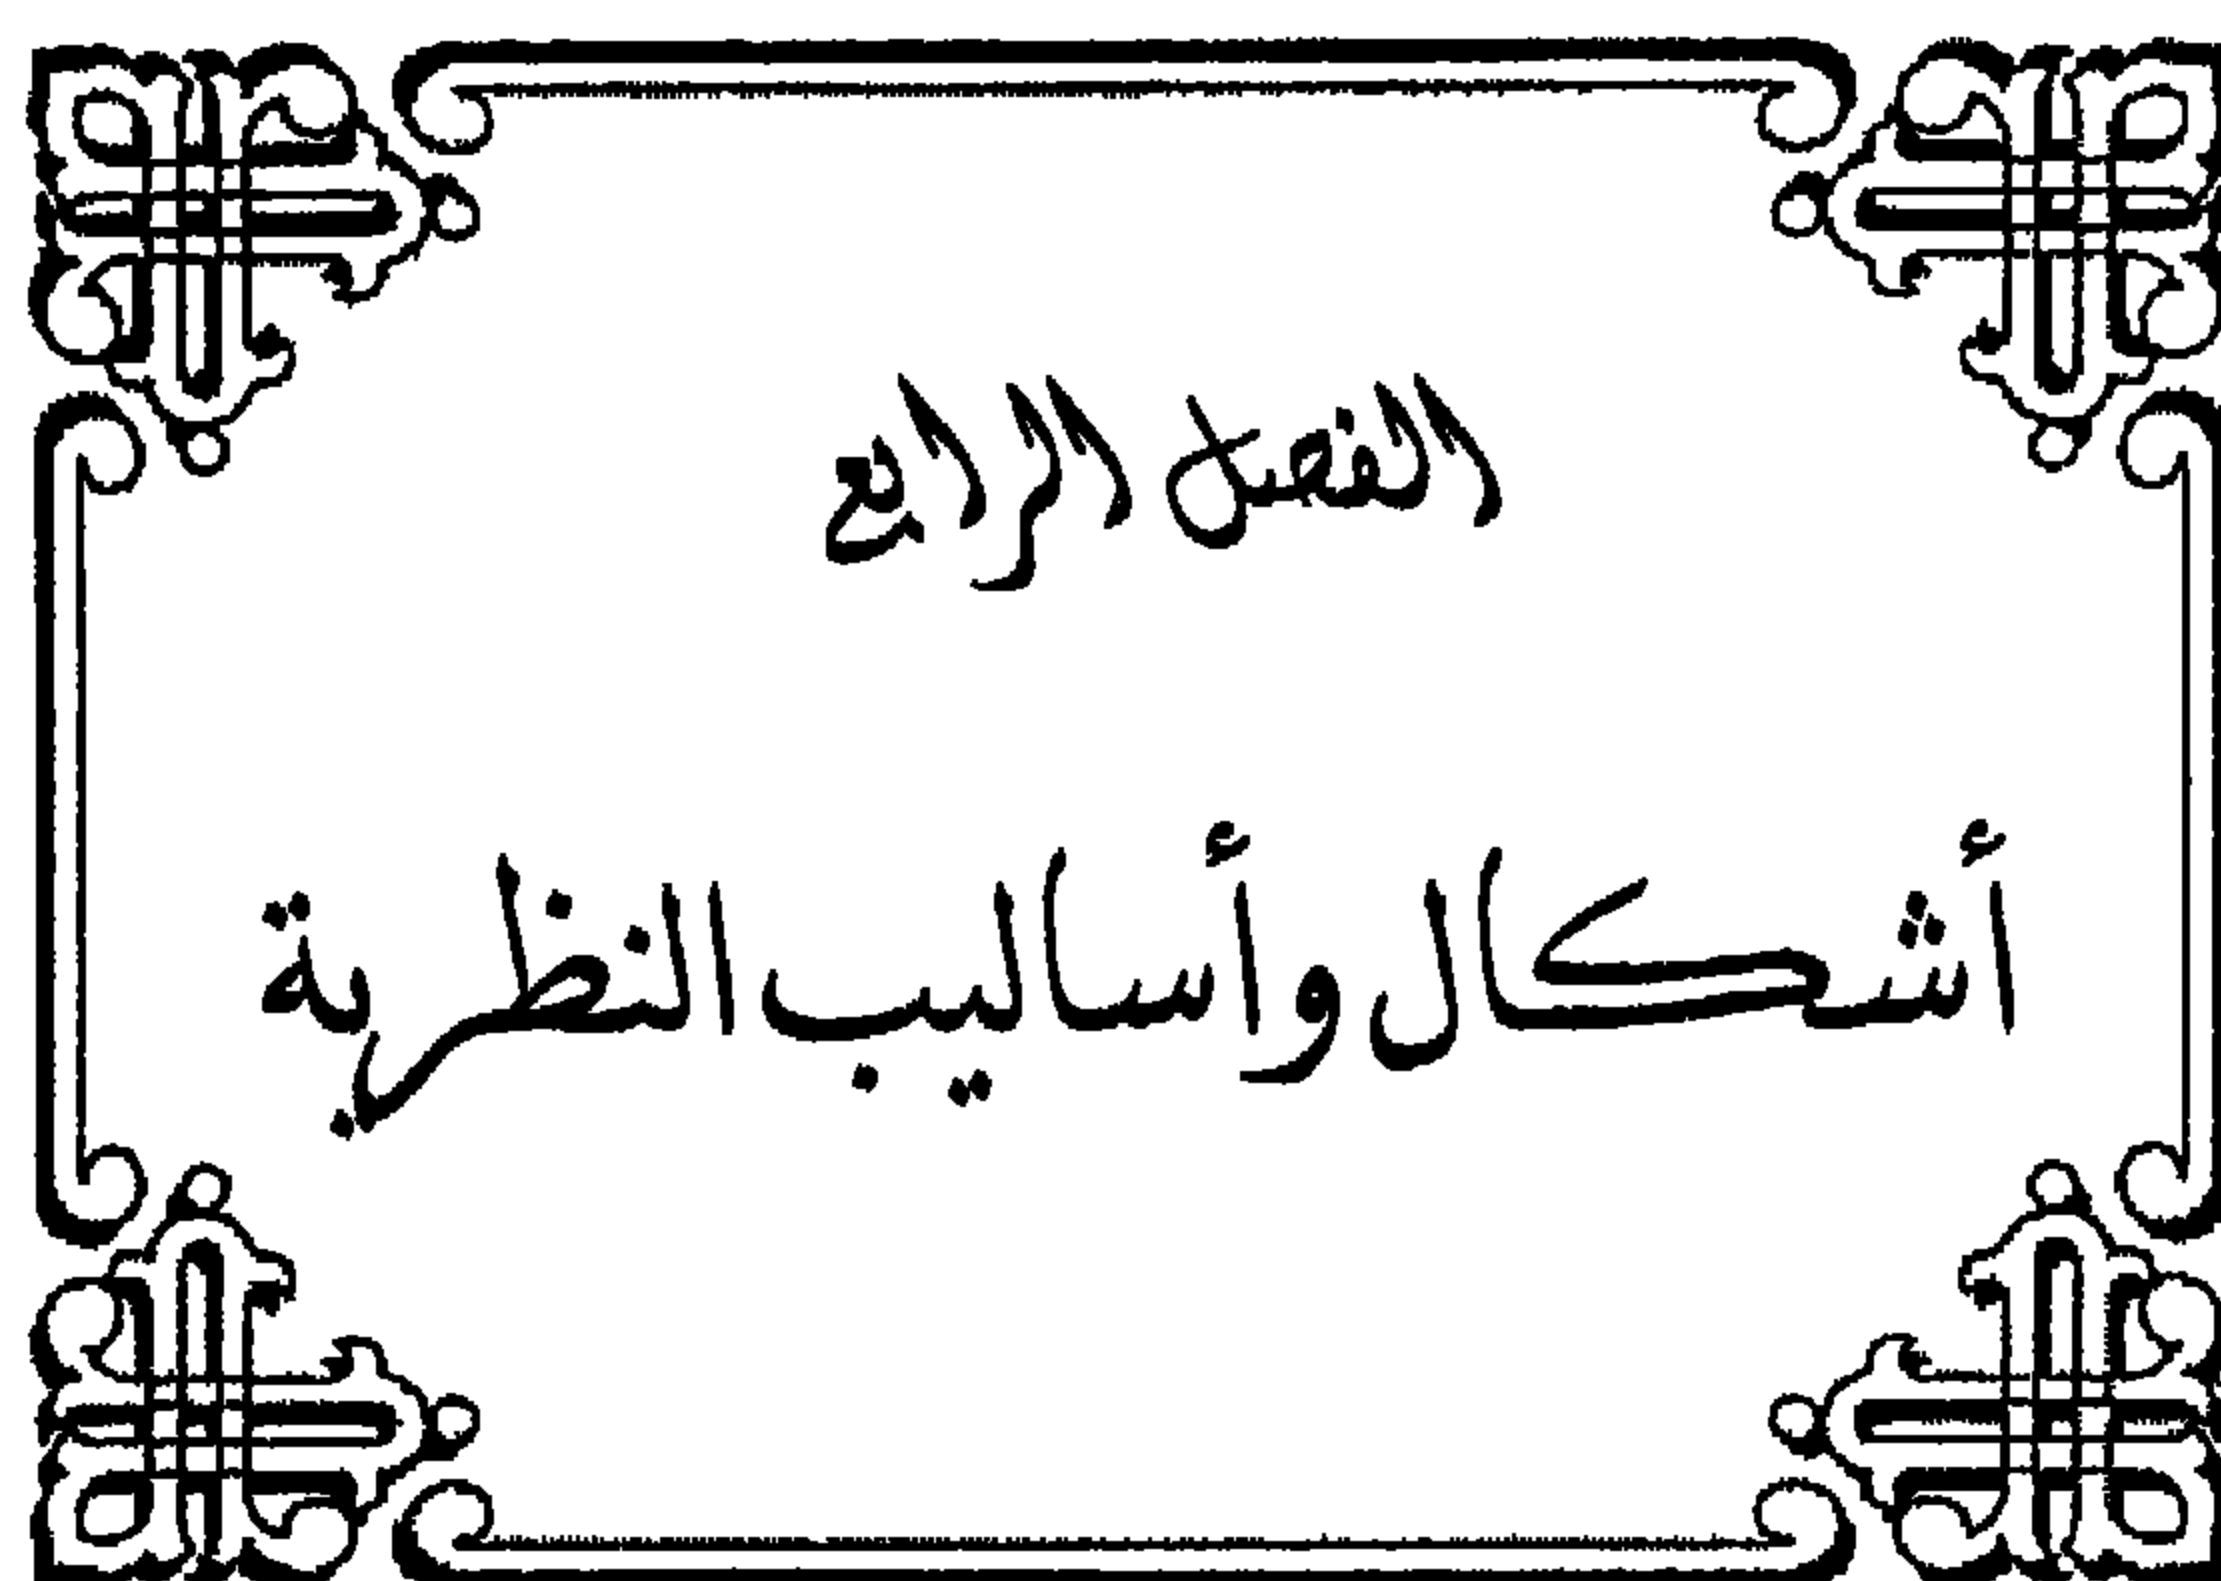 الفصل الرابع
أشكال وأساليب النظرية